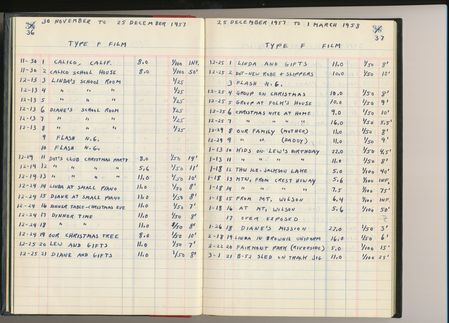 30 NOVEMBER TO 25 DECEMBER 1957
36
TYPE F FILM
11-30 1 CALICO, CALIF. 8.0 1/100 INF.
11-30 2 CALICO SCHOOL HOUSE 8.0 1/100 50'
12-13 3 LINDA'S SCHOOL ROOM 1/25
12-13 4 " " " 1/25
12-13 5 " " " 1/25
12-13 6 DIANE'S SCHOOL ROOM 1/25
12-13 7 " " " 1/25
12-13 8 " " " 1/25
9 FLASH N.G.
10 FLASH N.G.
12-19 11 DOT'S CLUB CHRISTMAS PARTY 8.0 1/50 14'
12-19 12 " " " " 5.6 1/50 11'
12-19 13 " " " " 8.0 1/50 10'
12-24 14 LINDA AT SMALL PIANO 11.0 1/50 8'
12-24 15 DIANE AT SMALL PIANO 16.0 1/50 8'
12-24 16 DINNER TABLE-CHRISTMAS EVE 11.0 1/50 7'
12-24 17 DINNER TIME 11.0 1/50 8'
12-24 18 " " 11.0 1/50 8'
12-24 19 OUR CHRISTMAS TREE 8.0 1/50 10'
12-25 20 LEW AND GIFTS 11.0 1/50 7'
12-25 21 DIANE AND GIFTS 11.0 1/50 8'
25 DECEMBER 1957 TO 1 MARCH 1958
37
TYPE F FILM
12-25 1 LINDA AND GIFTS 11.0 1/50 8'
12-25 2 DOT-NEW ROBE & SLIPPERS 10.0 1/50 10'
3 FLASH N.G.
12-25 4 GROUP ON CHRISTMAS 8.0 1/50 10'
12-25 5 GROUP AT FOLK'S HOUSE 10.0 1/50 9'
12-25 6 CHRISTMAS NITE AT HOME 9.0 1/50 10'
12-25 7 " " " " 16.0 1/50 5.5'
12-29 8 OUR FAMILY (MOTHER) 11.0 1/50 8'
12-29 9 " " (DADDY) 11.0 1/50 9'
1-11 10 KIDS ON LEW'S BIRTHDAY 22.0 1/50 4.5'
1-11 11 " " " " 11.0 1/50 8'
1-18 12 JACKSON LAKE 5.0 1/100 40'
1-18 13 MTN. FROM CREST HIWAY 5.6 1/100 INF.
1-18 14 " " " " 7.5 1/100 75'
1-18 15 FROM MT. WILSON 6.4 1/100 INF.
1-18 16 AT MT. WILSON 5.6 1/100 50'
17 OVER EXPOSED
1-26 18 DIANE'S MISSION 22.0 1/50 3'
2-18 19 LINDA IN BROWNIE UNIFORM 16.0 1/50 6'
2-22 20 FAIRMONT PARK (RIVERSIDE) 5.0 1/100 15'
3-1 21 B-52 SLED ON TRACK 11.0 1/100 25'